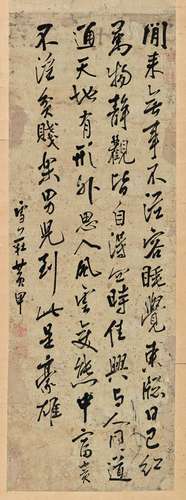 閒來無事不從容睡覺東窗日已紅
萬物靜觀皆自得四時佳興與人同道
通天地有形外思入風雲變態中富貴
不淫貧賤樂男兒到此是豪雄
雪莊黃甲